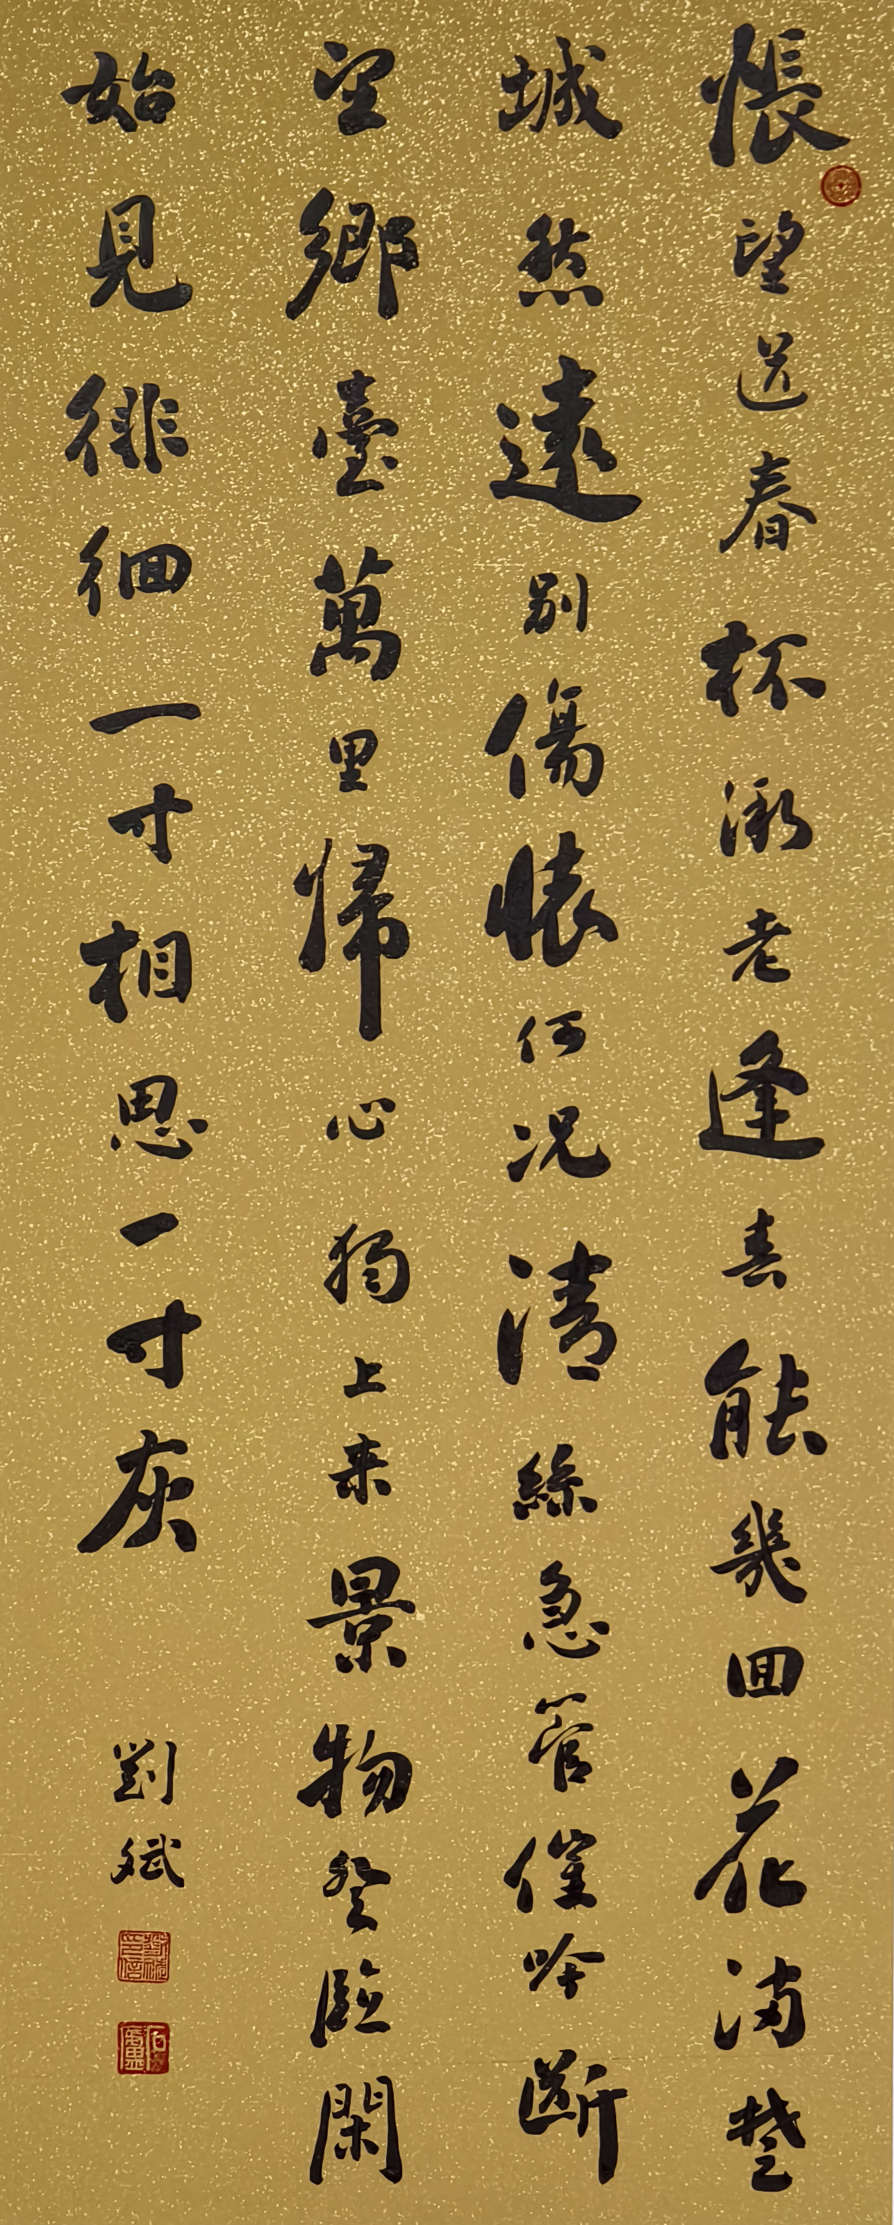 悵望送春杯漸老逢春能幾回花滿楚
城然遠別傷懷何況清絲急管催吟斷
望鄉臺萬里歸心獨上来景物登臨閑
始見徘徊一寸相思一寸灰
劉斌